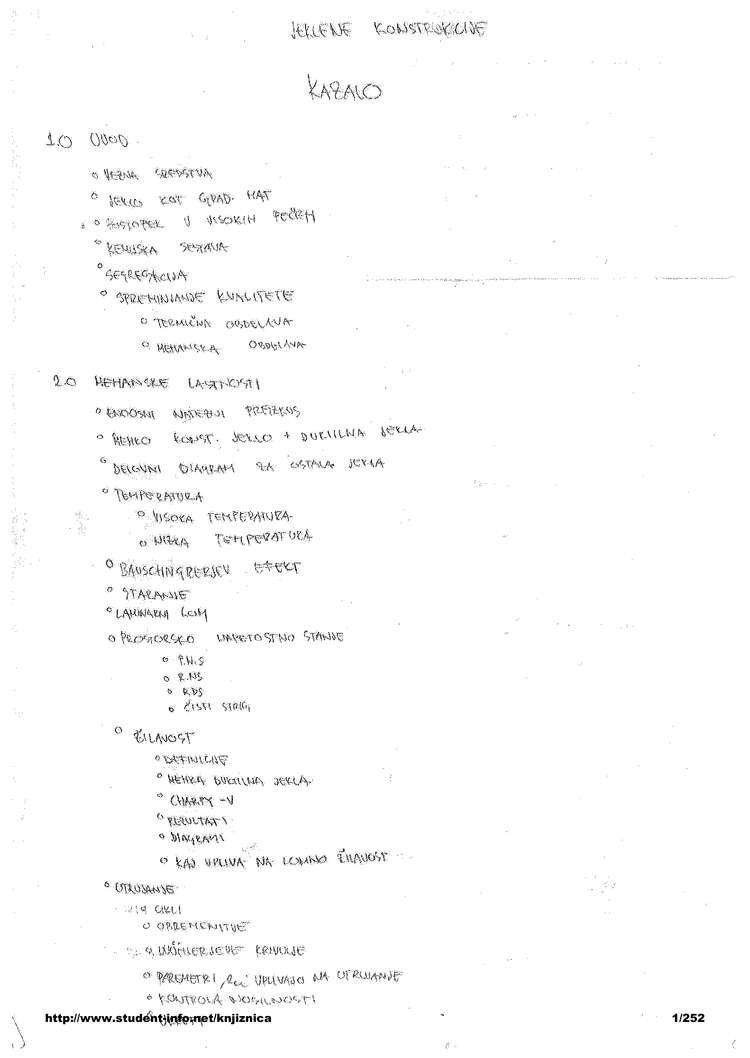 JEKLENE KONSTRUKCIJE
KAZALO
1.0 UVOD
o VEZNA SREDSTVA
o JEKLO KOT GRAD. MAT
o POSTOPEK V VISOKIH PEČEH
o KEMIJSKA SESTAVA
o SEGREGACIJA
o SPREMINJANJE KVALITETE
o TERMIČNA OBDELAVA
o MEHANSKA OBDELAVA
2.0 MEHANSKE LASTNOSTI
o ENOOSNI NATEZNI PREIZKUS
o MEHKO KONST. JEKLO + DUKTILNA JEKLA
o DELOVNI DIAGRAM ZA OSTALA JEKLA
o TEMPERATURA
o VISOKA TEMPERATURA
o NIZKA TEMPERATURA
o BAUSCHINGERJEV EFEKT
o STARANJE
o LAMINARNI LOM
o PROSTORSKO NAPETOSTNO STANJE
o P.N.S
o R.NS
o R.DS
o ČISTI STRIG
o ŽILAVOST
o DEFINICIJE
o MEHKA DUKTILNA JEKLA
o CHARPY-V
o REZULTATI
o DIAGRAMI
o KAJ VPLIVA NA LOMNO ŽILAVOST
o UTRUJANJE
CIKLI
o OBREMENITVE
o WÖHLERJEVE KRIVULJE
o PARAMETRI, ki VPLIVAJO NA UTRUJANJE
o KONTROLA NOSILNOSTI
http://www.student-info.net/knjiznica 1/252